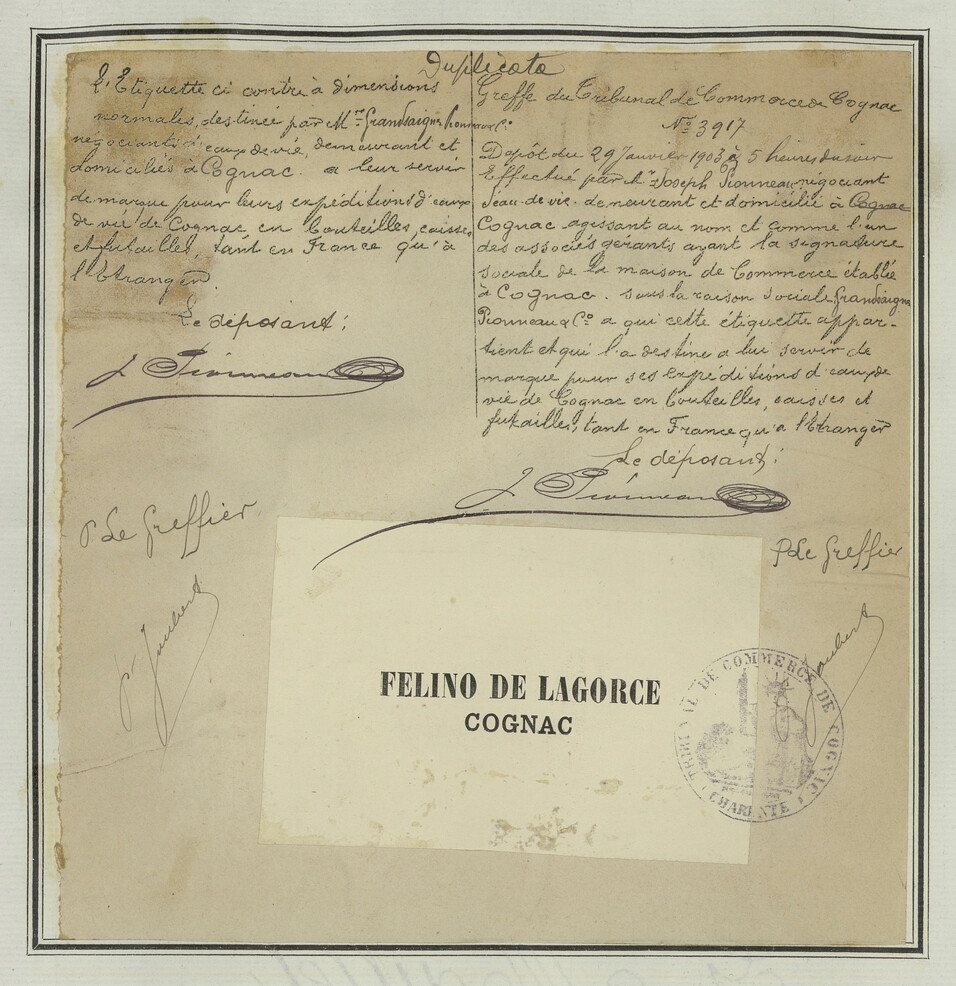 Duplicata
L'Etiquette ci contre à dimensions
normales, destinée par Mrs Grandsaigne Pionneau & Co
négociants d'eaux de vie, demeurant et
domiciliés à Cognac. a leur servir
de marque pour leurs expéditions d'eaux
de vie de Cognac en bouteilles, caisses
et futailles, tant en France qu'à
l'Etranger.
Le déposant;
J Pionneau
P Le Greffier
Joubert
Greffe du Tribunal de Commerce de Cognac
No 3917
Dépôt du 29 Janvier 1903 à 5 heures du soir
Effectué par Mr Joseph Pionneau négociant
d'eau de vie. demeurant et domicilié à Cognac
Cognac agissant au nom et comme l'un
des associés gérants ayant la signature
sociale de la maison de Commerce établie
à Cognac. sous la raison sociale Grandsaigne
Pionneau & Co a qui cette étiquette appar-
tient et qui l'a destine a lui servir de
marque pour ses expéditions d'eaux de
vie de Cognac en bouteilles, caisses et
futailles, tant en France qu'a l'Etranger
Le déposant;
J Pionneau
P Le Greffier
Joubert
FELINO DE LAGORCE
COGNAC
TRIBUNAL DE COMMERCE DE COGNAC
CHARENTE